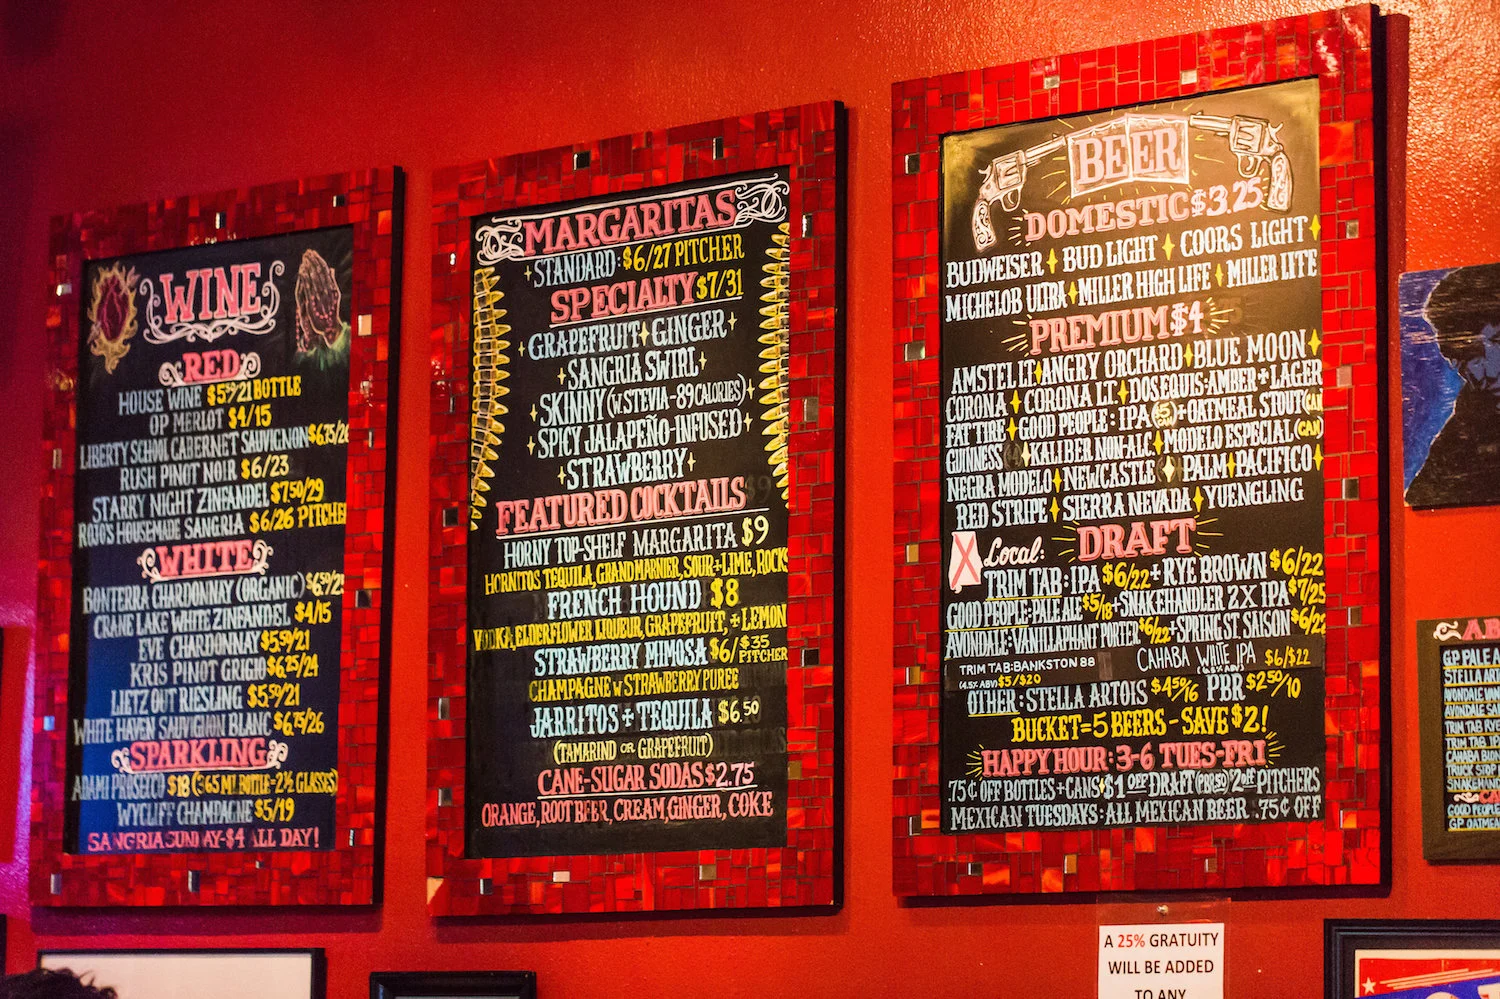 WINE
RED
HOUSE WINE $5.50/21 BOTTLE
OP MERLOT $4/15
LIBERTY SCHOOL CABERNET SAUVIGNON $6.75/26
RUSH PINOT NOIR $6/23
STARRY NIGHT ZINFANDEL $7.50/29
ROJO'S HOUSEMADE SANGRIA $6/26 PITCHER
WHITE
BONTERRA CHARDONNAY (ORGANIC) $6.50/25
CRANE LAKE WHITE ZINFANDEL $4/15
EVE CHARDONNAY $5.50/21
KRIS PINOT GRIGIO $6.25/24
LIETZ OUT RIESLING $5.50/21
WHITE HAVEN SAUVIGNON BLANC $6.75/26
SPARKLING
ADAMI PROSECCO $18 (365 ML BOTTLE-2½ GLASSES)
WYCLIFF CHAMPAGNE $5/19
SANGRIA SUNDAY-$4 ALL DAY!
MARGARITAS
STANDARD: $6/27 PITCHER
SPECIALTY $7/31
GRAPEFRUIT GINGER
SANGRIA SWIRL
SKINNY (W. STEVIA-89 CALORIES)
SPICY JALAPEÑO-INFUSED
STRAWBERRY
FEATURED COCKTAILS
HORNY TOP-SHELF MARGARITA $9
HORNITOS TEQUILA, GRAND MARNIER, SOUR+LIME, ROCKS
FRENCH HOUND $8
VODKA, ELDERFLOWER LIQUEUR, GRAPEFRUIT, + LEMON
STRAWBERRY MIMOSA $6/$35 PITCHER
CHAMPAGNE W STRAWBERRY PUREE
JARRITOS + TEQUILA $6.50
(TAMARIND OR GRAPEFRUIT)
CANE-SUGAR SODAS $2.75
ORANGE, ROOT BEER, CREAM, GINGER, COKE
BEER
DOMESTIC $3.25
BUDWEISER BUD LIGHT COORS LIGHT
MICHELOB ULTRA MILLER HIGH LIFE MILLER LITE
PREMIUM $4
AMSTEL LT ANGRY ORCHARD BLUE MOON
CORONA CORONA LT. DOS EQUIS: AMBER + LAGER
FAT TIRE GOOD PEOPLE: IPA $5 CAN + OATMEAL STOUT (CAN
GUINNESS KALIBER NON-ALC. MODELO ESPECIAL (CAN)
NEGRA MODELO NEWCASTLE PALM PACIFICO
RED STRIPE SIERRA NEVADA YUENGLING
DRAFT
Local:
TRIM TAB: IPA $6/22 + RYE BROWN $6/22
GOOD PEOPLE: PALE ALE $5/18 + SNAKEHANDLER 2X IPA $7/25
AVONDALE: VANILLAPHANT PORTER $6/22 + SPRING ST. SAISON $6/22
TRIM TAB: BANKSTON 88 CAHABA WHITE IPA $6/$22
(4.5% ABV) $5/$20
OTHER: STELLA ARTOIS $4.50/16 PBR $2.50/10
BUCKET=5 BEERS - SAVE $2!
HAPPY HOUR: 3-6 TUES-FRI
.75¢ OFF BOTTLES+CANS $1 OFF DRAFT (PBR .50) $2 OFF PITCHERS
MEXICAN TUESDAYS: ALL MEXICAN BEER .75¢ OFF
A 25% GRATUITY
WILL BE ADDED
TO ANY
AB
GP PALE A
STELLA ART
AVONDALE VAN
AVONDALE SA
TRIM TAB RYE
TRIM TAB IP
CAHABA BLON
TRUCK STOP
SNAKEHAN
CA
GOOD PEOPLE
GP OATMEA